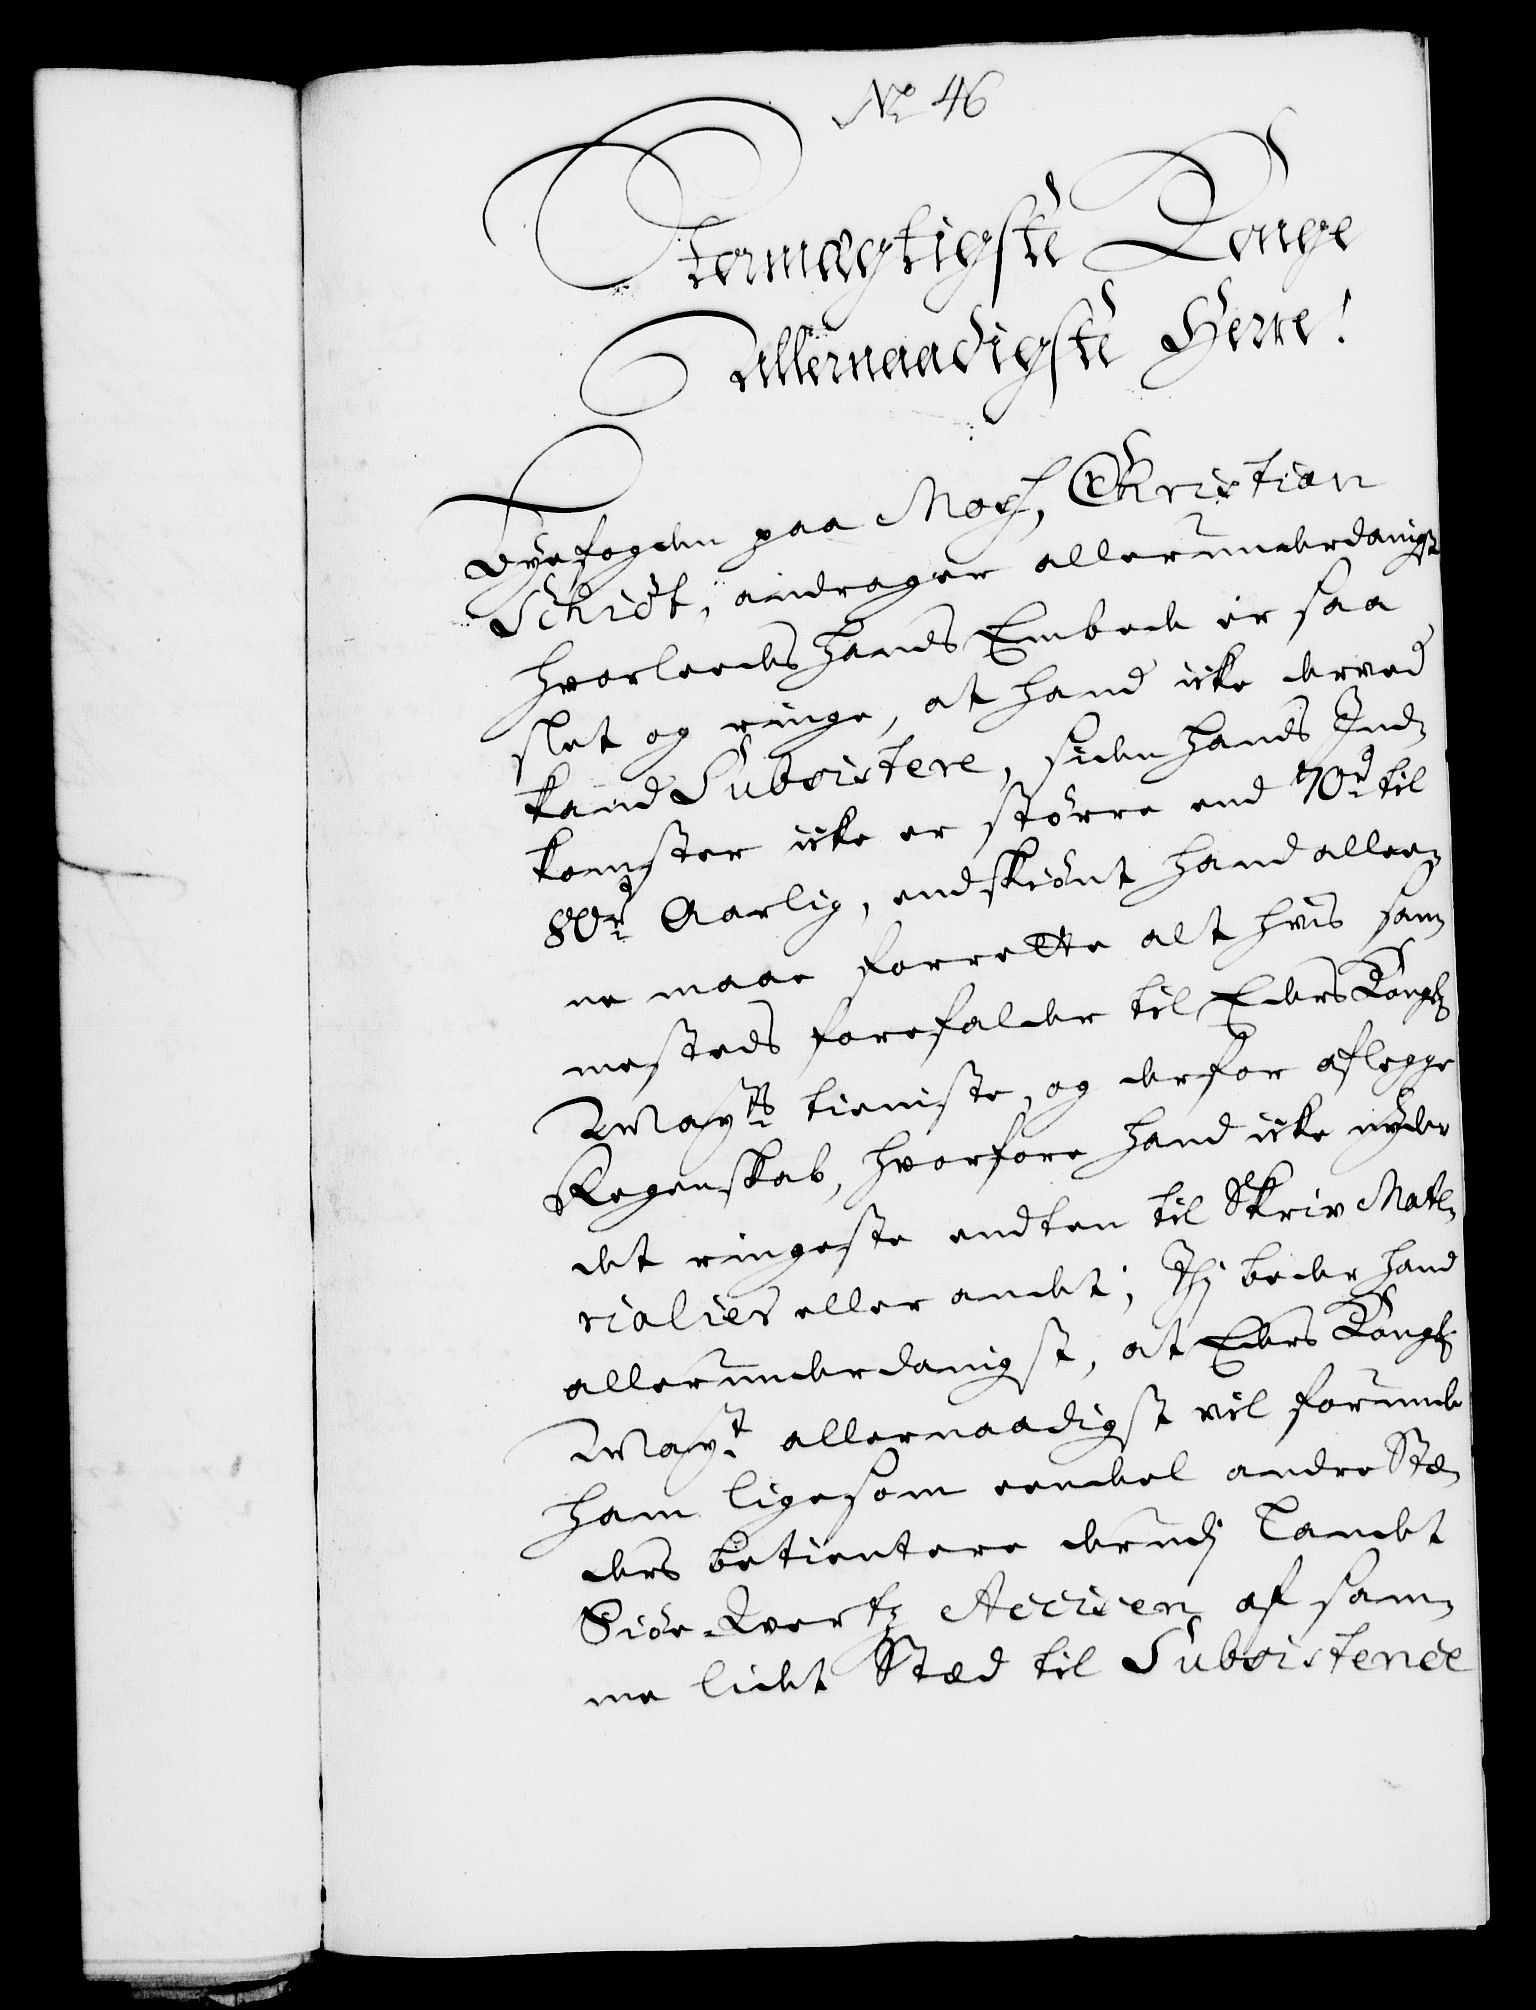 No 46
Stormægtigste Konge
Allernaadigste Herre!
Byefogden paa Moss, Christian
Schiøt, andrager allerunderdanigst
hvorleedes hands Embede er saa
slet og ringe, at hand icke derved
kand Subsistere, siden hands Ind-
komster icke er större end 70rd til
80rd Aarlig, endskiönt hand alleer-
ne maae forrette alt hvis sam-
mesteds forefalder til Eders Kongl.
May.ts tieniste, og derfor aflegge
Regenskab, hvorfore hand icke nyder
det ringeste endten til Skriv Mate-
rialier eller andet; Thj beder hand
allerunderdanigst, at Eders Kongl.
May.t allernaadigst vil forunde
ham ligesom eendeel andre Stæ-
ders betientere derudj Landet
Siöe-Qverts Accisen af sam-
me lidet Stæd til Subsistence